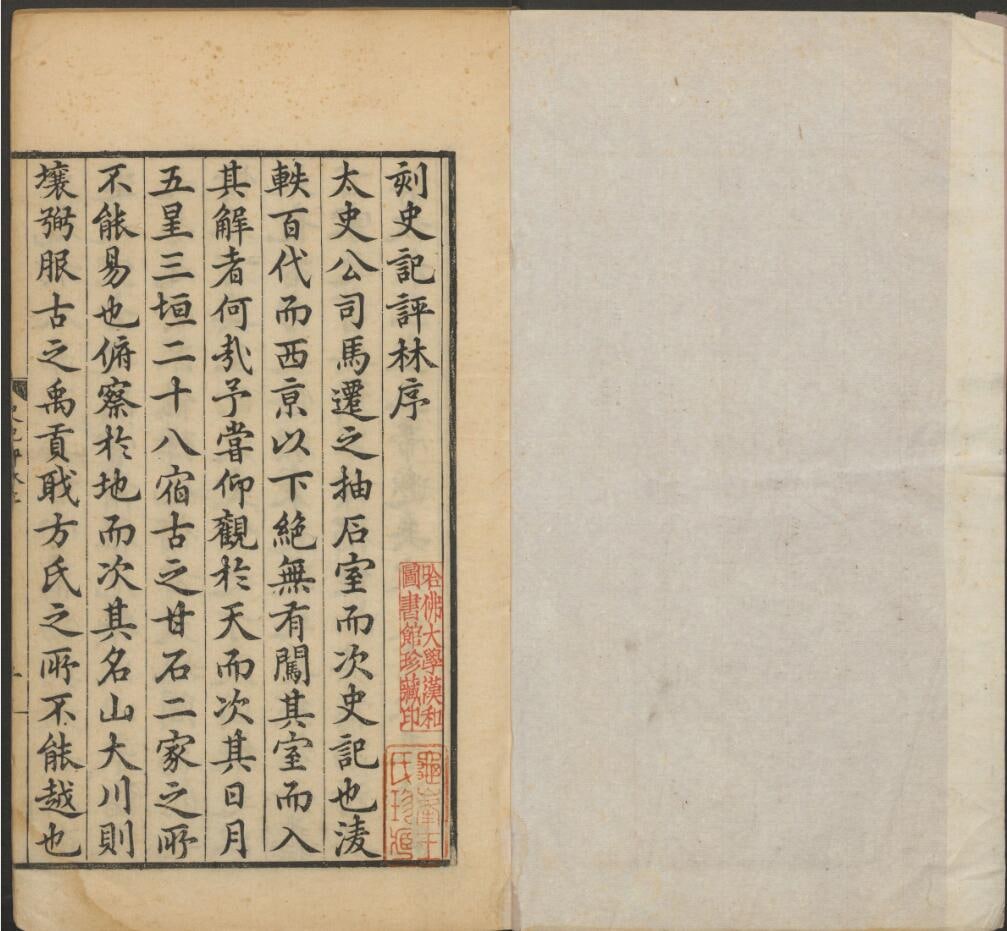 刻史記評林序
太史公司馬遷之抽石室而次史記也淩
軼百代而西亰以下絕無有闖其室而入
其解者何㢤予嘗仰觀扵天而次其日月
五星三垣二十八宿古之甘石二家之所
不能易也俯察扵地而次其名山大川則
壤弼服古之禹貢聀方氏之所不能越也
哈佛大學漢和
圖書館珍藏印